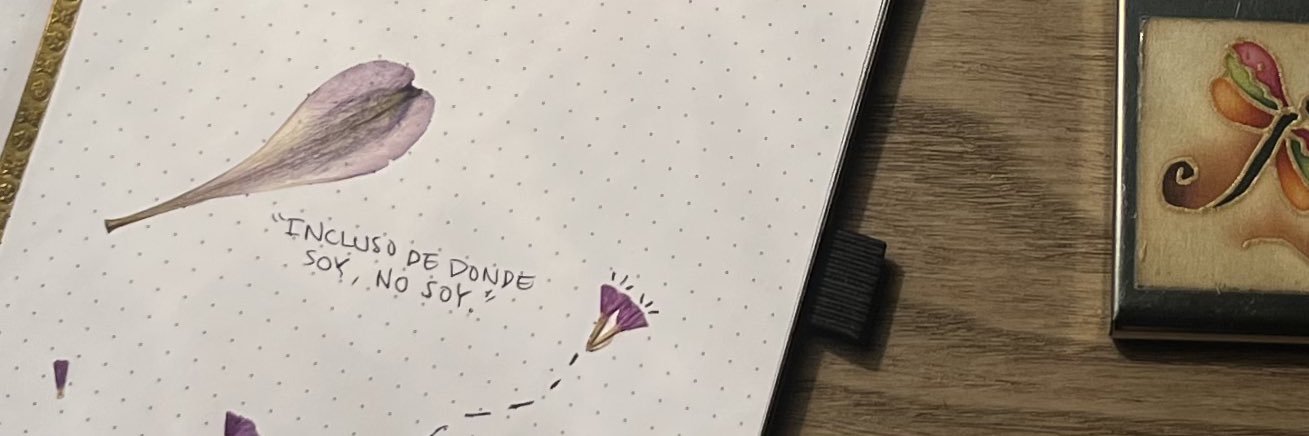 "INCLUSO DE DONDE
SOY, NO SOY."